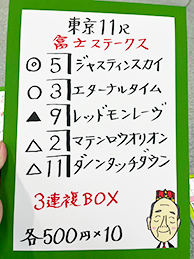 東京11R
富士ステークス
◎ 5 ジャスティンスカイ
○ 3 エターナルタイム
▲ 9 レッドモンレーヴ
△ 2 マテンロウオリオン
△ 11 ダノンタッチダウン
3連複BOX
各500円×10